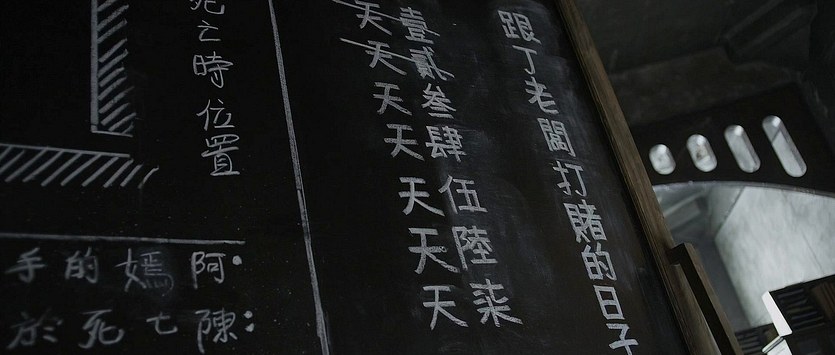 跟丁老闆打賭的日子
壹天
貳天
叁天
肆天
伍天
陸天
柒天
死亡時位置
·阿嫣的手
:陳七死於